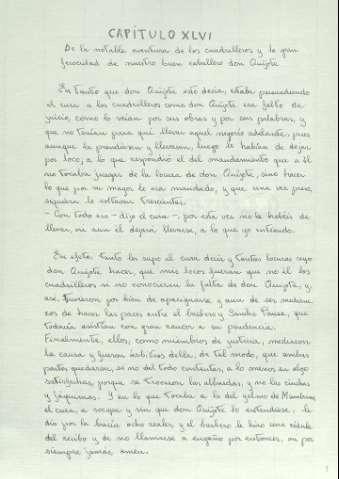 CAPÍTULO XLVI
De la notable aventura de los cuadrilleros y la gran
ferocidad de nuestro buen caballero don Quijote
En tanto que don Quijote esto decía, estaba persuadiendo
el cura a los cuadrilleros como don Quijote era falto de
juicio, como lo veían por sus obras y por sus palabras, y
que no tenían para qué llevar aquel negocio adelante, pues
aunque le prendiesen y llevasen, luego le habían de dejar
por loco; a lo que respondió el del mandamiento que a él
no tocaba juzgar de la locura de don Quijote, sino hacer
lo que por su mayor le era mandado, y que una vez preso,
siquiera le soltasen trescientas.
- Con todo eso - dijo el cura -, por esta vez no le habéis de
llevar, ni aun él dejará llevarse, a lo que yo entiendo.
En efeto, tanto les supo el cura decir y tantas locuras supo
don Quijote hacer, que más locos fueran que no él los
cuadrilleros si no conocieran la falta de don Quijote, y,
así, tuvieron por bien de apaciguarse y aun de ser median
eros de hacer las paces entre el barbero y Sancho Panza, que
todavía asistían con gran rancor a su pendencia.
Finalmente, ellos, como miembros de justicia, mediaron
la causa y fueron árbitros della, de tal modo, que ambas
partes quedaron, si no del todo contentas, a lo menos en algo
satisfechas, porque se trocaron las albardas, y no las cinchas
y jáquimas. Y en lo que tocaba a lo del yelmo de Mambrino,
el cura, a socapa y sin que don Quijote lo entendiese, le
dio por la bacía ocho reales, y el barbero le hizo una cédula
del recibo y de no llamarse a engaño por entonces, ni por
siempre jamás amén.